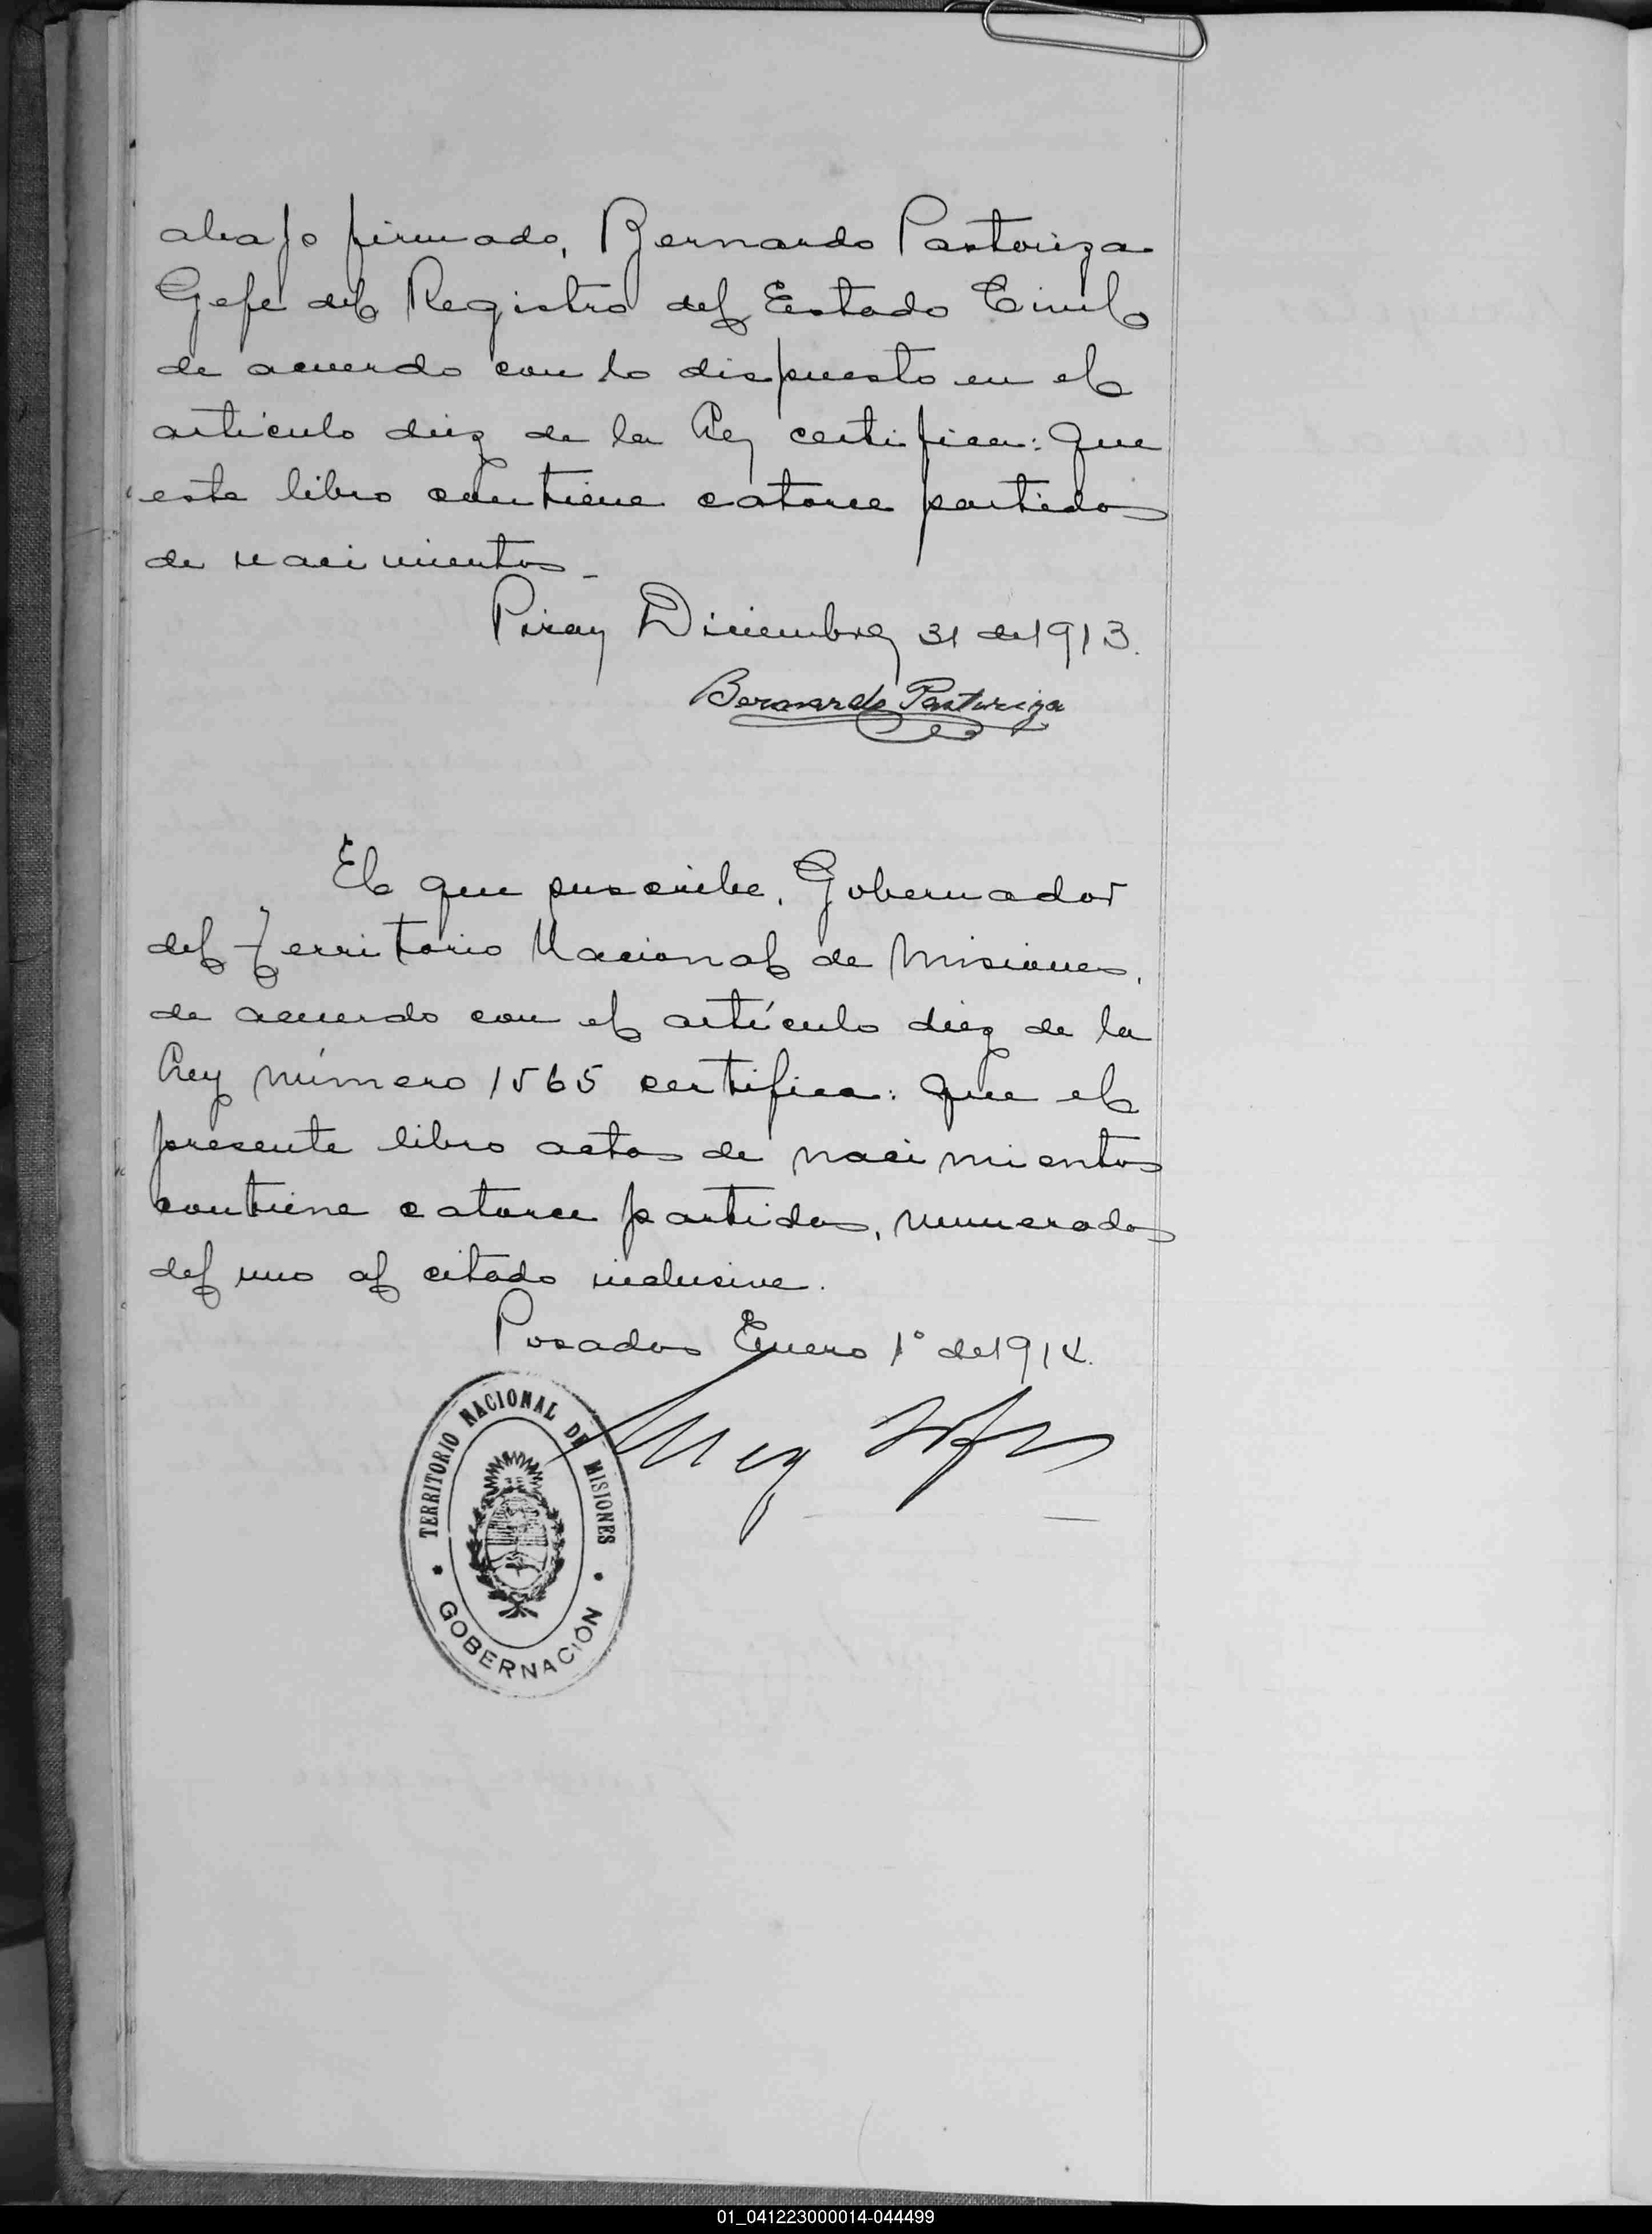 abajo firmado, Bernardo Pastoriza
Gefe del Registro del Estado Civil
de acuerdo con lo dispuesto en el
artículo diez de la Ley certifica: Que
este libro contiene catorce partidas
de nacimientos_
Piray Diciembre 31 de 1913.
Bernardo Pastoriza
El que suscribe, Gobernador
del Territorio Nacional de Misiones,
de acuerdo con el artículo diez de la
Ley número 1565 certifica: Que el
presente libro actas de nacimientos
contiene catorce partidas, numeradas
del uno al citado inclusive.
Posadas Enero 1° de 1914.
TERRITORIO NACIONAL DE MISIONES
GOBERNACIÓN
01_041223000014-044499